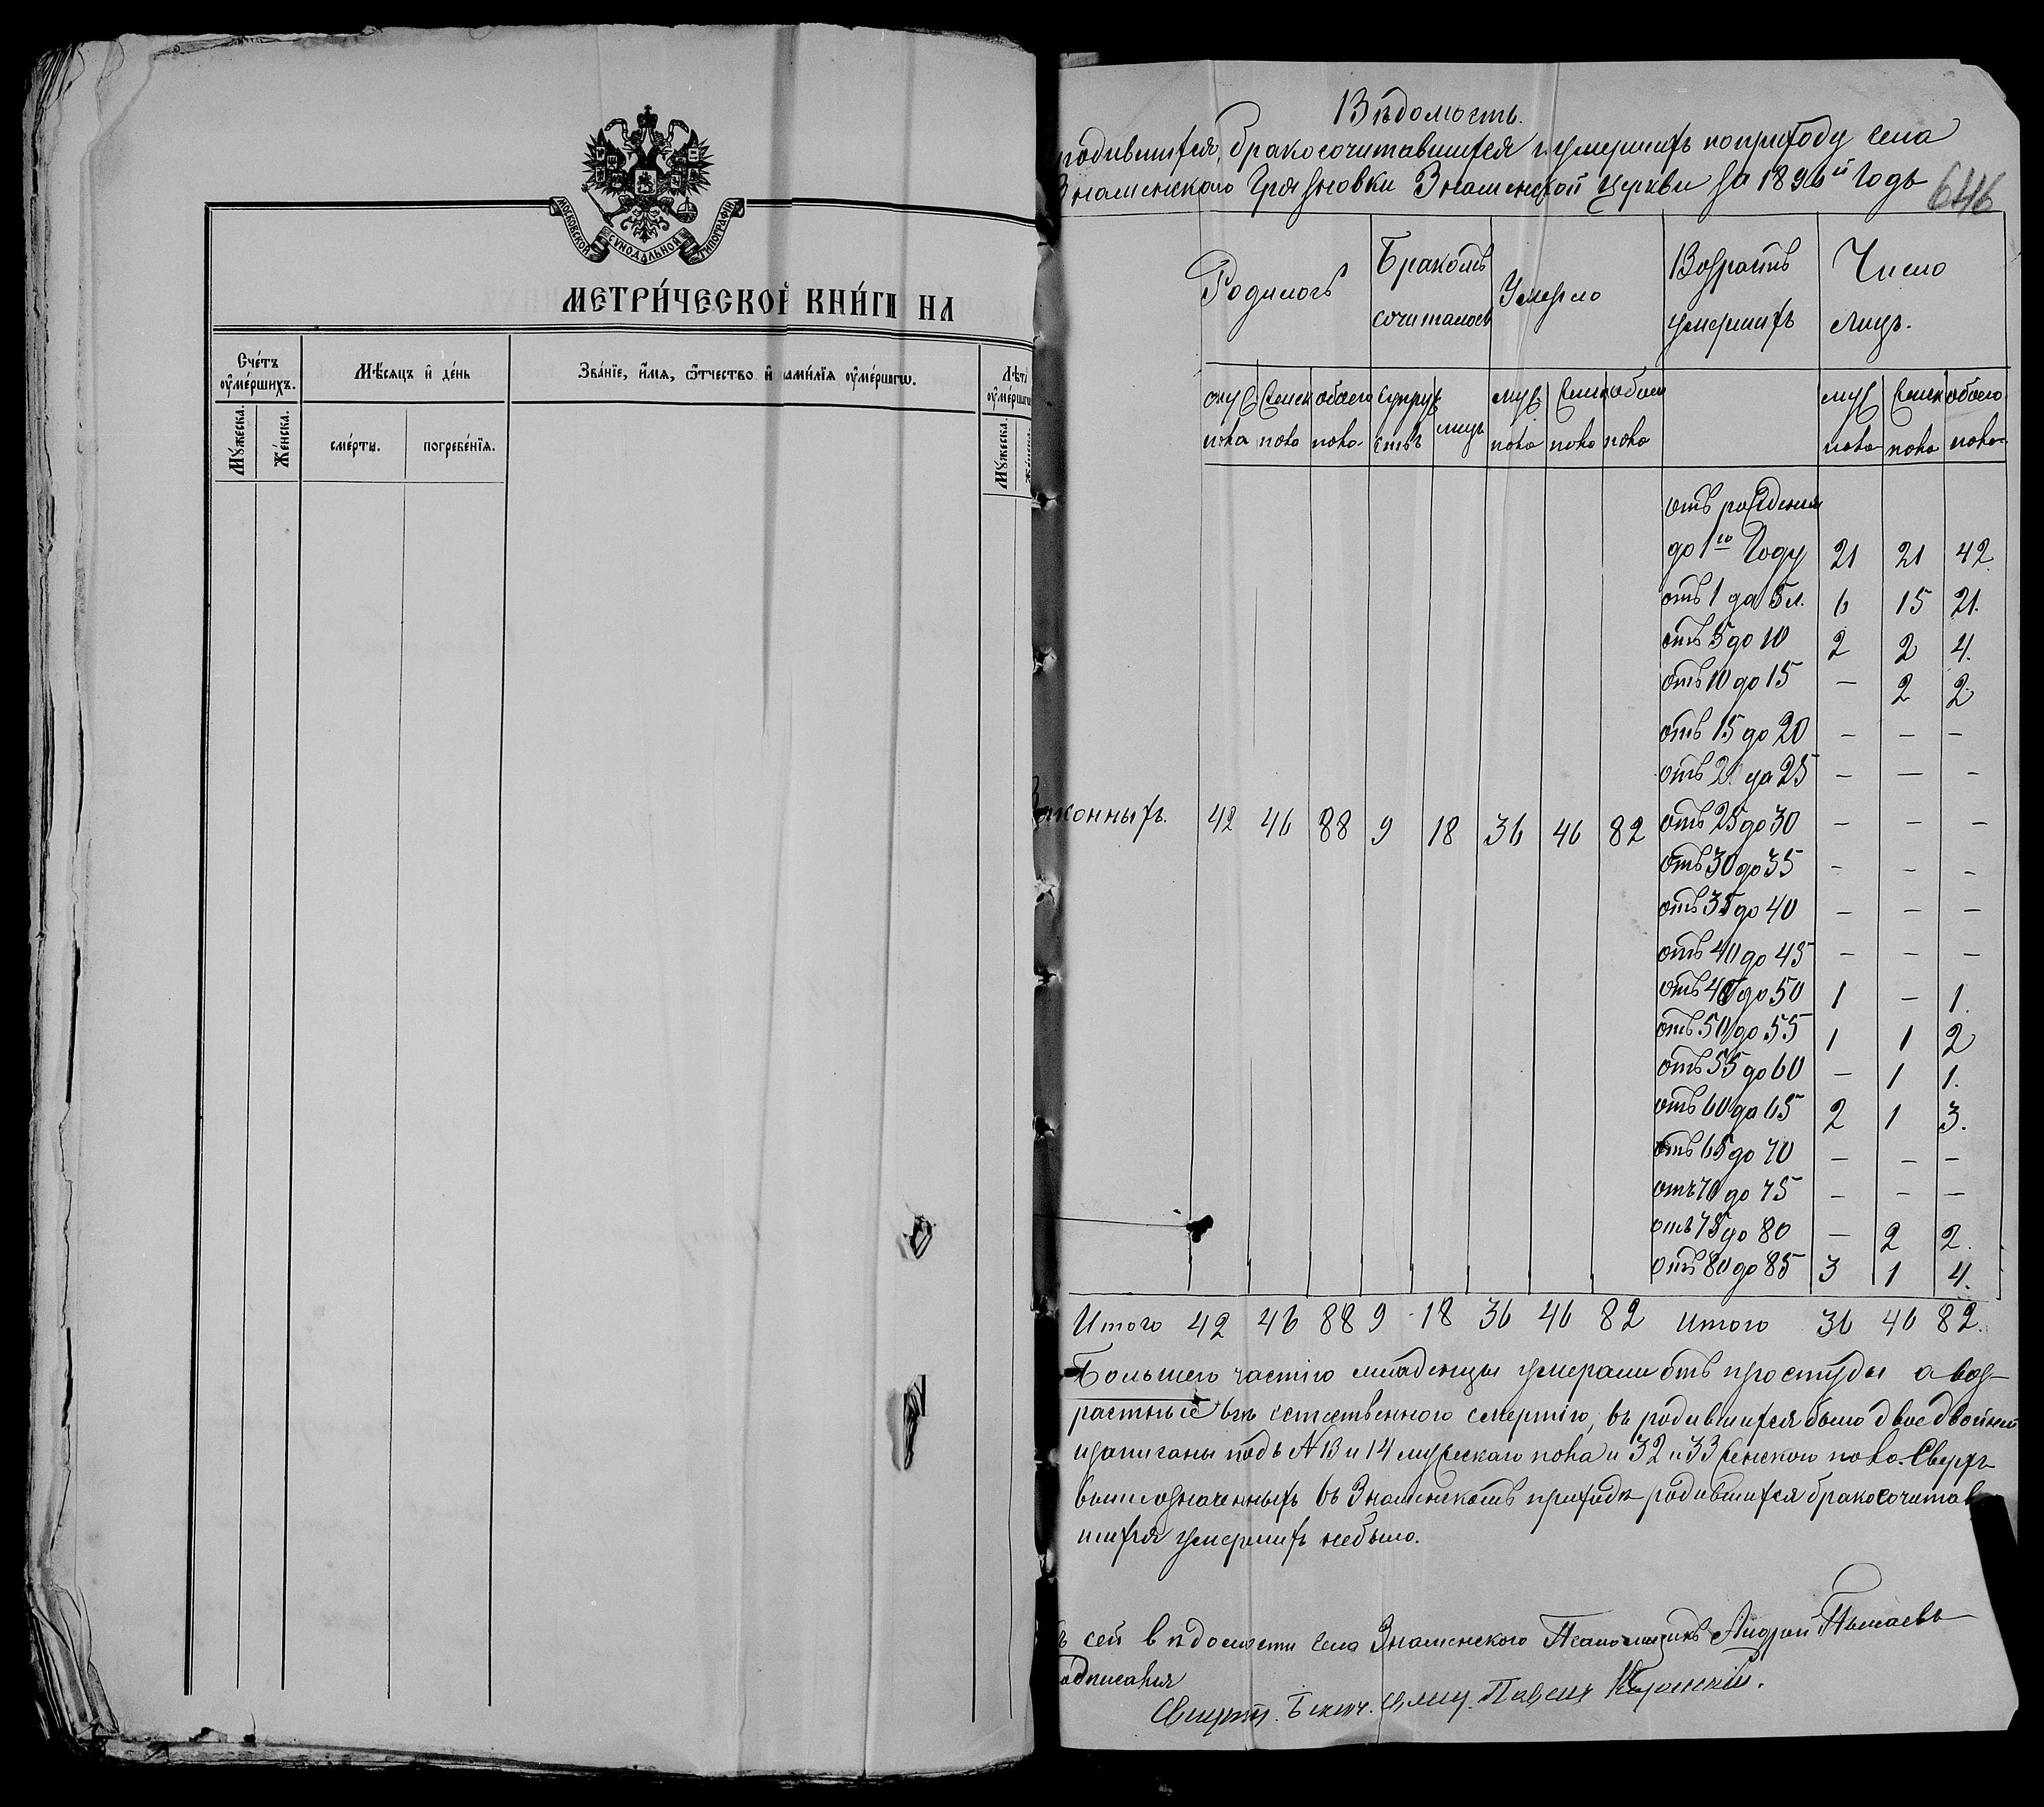 МОСКОВСКОЙ СѴНОДАЛЬНОЙ ТИПОГРАФІИ
МЕТРИ́ЧЕСКОЙ КНИ́ГИ НА
Сче́тъ ᲂумéршихъ.
Мѣ́сяцъ и҆ де́нь
Зва́нїе, и҆́мя, ѻ҆́тчество и҆ фами́лїя ᲂумéршагѡ.
Лѣт
ᲂумéрша
Мꙋ́жеска.
Же́нска.
сме́рти.
погребе́нїя.
Мꙋ́жеска.
Вѣдомость.
родившихся, бракосочитавшихся и умершихъ по приходу села
Знаменскаго Грязновки Знаменской церкви за 1896й Годъ
646
Родилось
Бракомъ сочиталось
Умерло
Возрастъ умершихъ
Число лицъ.
муж пола
женск пола
обоего пола
супружествъ
лицъ
муж пола
женск пола
обоего пола
муж пола
женск пола
обоего пола
отъ рожденія
до 1го Году 21 21 42.
отъ 1 до 5 л. 6 15 21.
отъ 5 до 10 2 2 4.
отъ 10 до 15 — 2 2.
отъ 15 до 20 — — —
отъ 2 до 25 — — —
Законныхъ. 42 46 88 9 18 36 46 82 отъ 25 до 30 — — —
отъ 30 до 35 — — —
отъ 35 до 40 — — —
отъ 40 до 45 — — —
отъ 45 до 50 1 — 1.
отъ 50 до 55 1 1 2
отъ 55 до 60 — 1 1.
отъ 60 до 65 2 1 3.
отъ 65 до 70 — — —
отъ 70 до 75 — — —
отъ 75 до 80 — 2 2.
отъ 80 до 85 3 1 4.
Итого 42 46 88 9 18 36 46 82 Итого 36 46 82.
Большею частію младенцы умерали отъ простуды а воз-
растные естественною смертію, въ родившихся было двое двойней
и записаны подъ № 13 и 14 мужескаго пола и 32 и 33 женскаго пола. Сверхъ
вышеозначенныхъ въ Знаменскомъ приходѣ родившихся бракосочитав
шихся умершихъ небыло.
Къ сей вѣдомости села Знаменского Псаломщикъ Андрей
подписался
Свящ. Павелъ